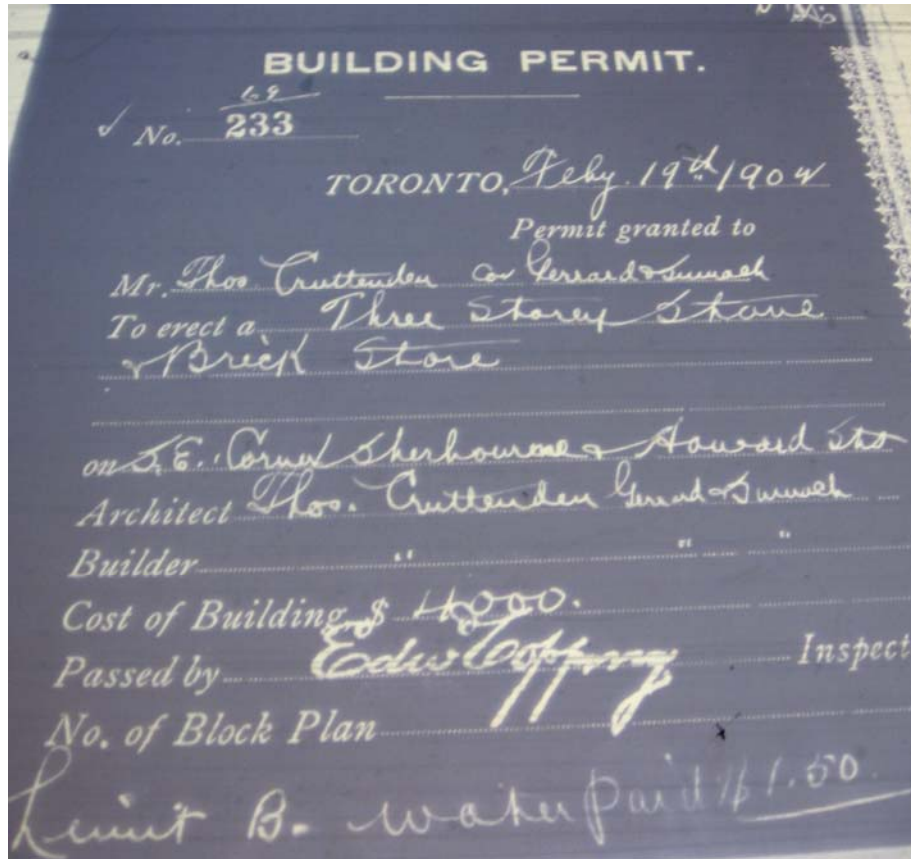 BUILDING PERMIT.
69
No. 233
TORONTO, Feby. 19th 1904
Permit granted to
Mr. Thos. Cruttenden Cor Gerrard & Sumach
To erect a Three Storey Stone
& Brick Store
on S.E. Corner Sherbourne & Howard Sts
Architect Thos. Cruttenden Gerrard & Sumach
Builder " " "
Cost of Building $ 4000.
Passed by Edw Coppng Inspect
No. of Block Plan
Limit B. Water paid $1.50.